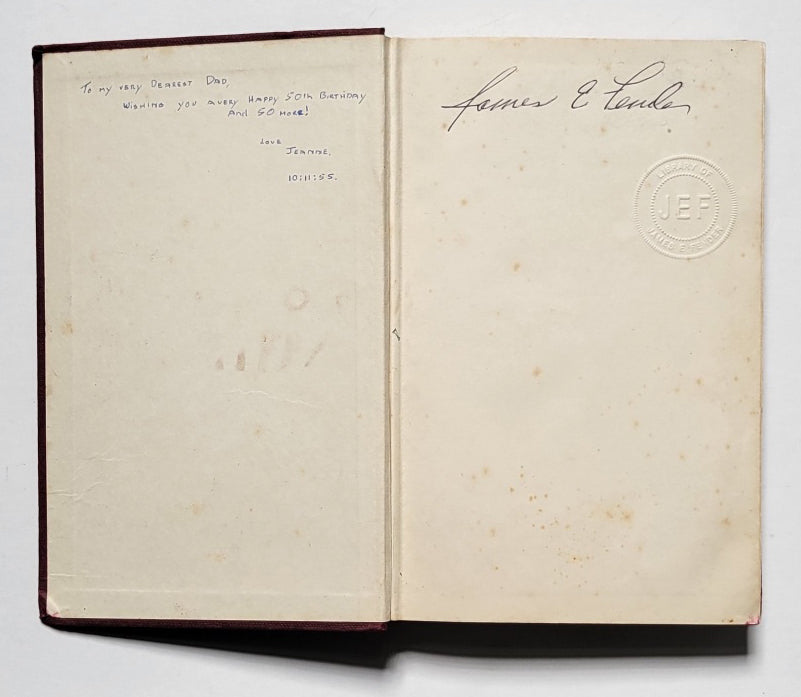 To my very Dearest Dad,
Wishing you a very Happy 50th Birthday
And 50 more!
Love
Jeanne.
10:11:55.
James E Fender
LIBRARY OF
JEF
JAMES E FENDER